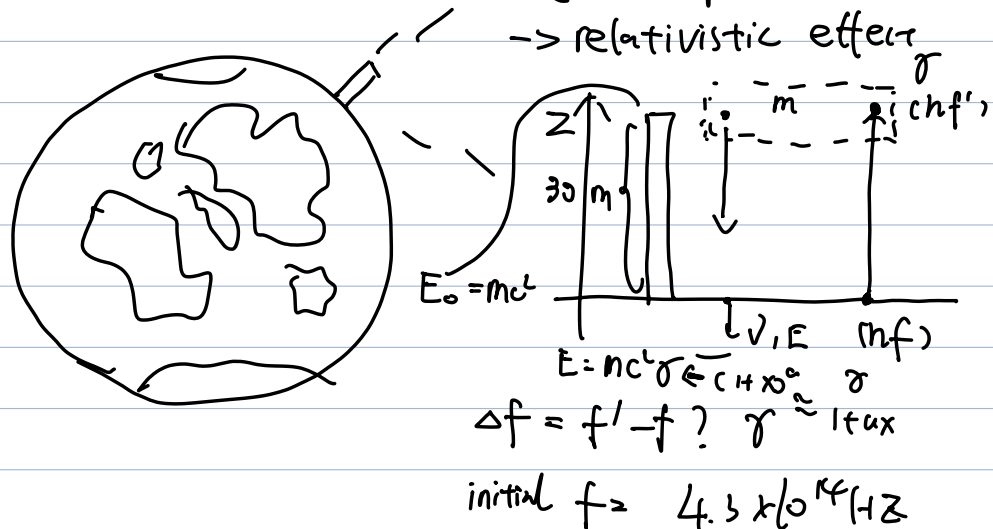 -> relativistic effect
γ
m
(hf')
Z
30 m
E₀ = mc²
V, E
(hf)
E = mc²γ ← (1+x)ᵃ
γ ≈ 1+ax
Δf = f' - f ?
initial f = 4.3 x 10¹⁴ Hz